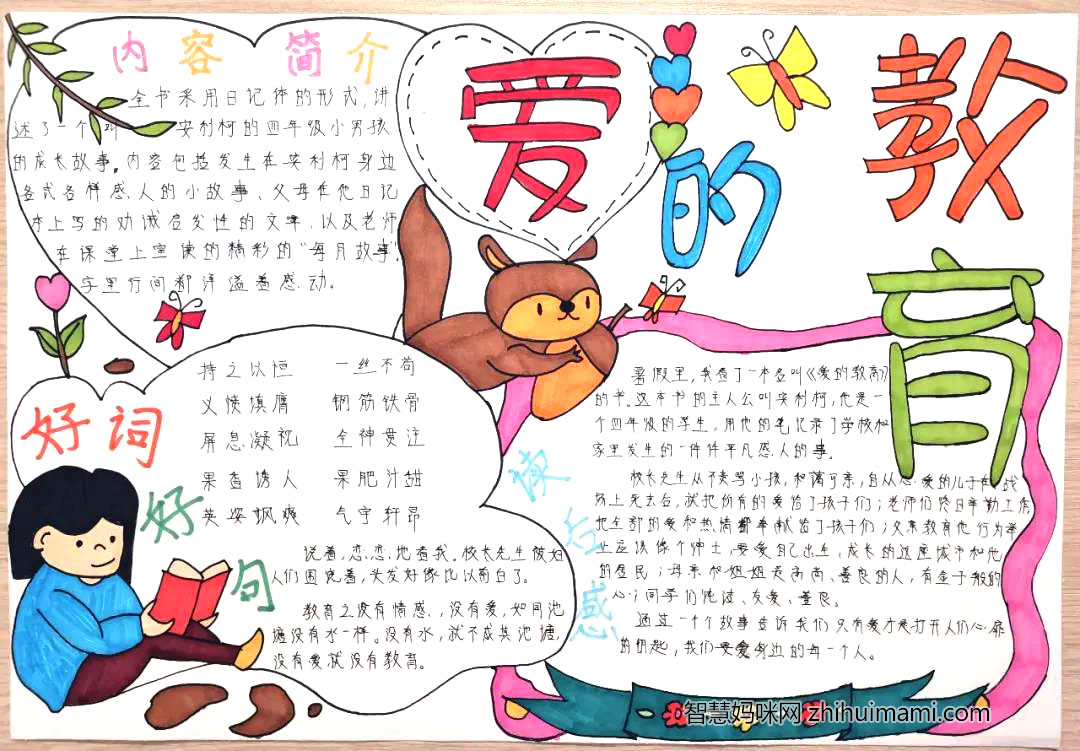 爱的教育
内容简介
全书采用日记体的形式,讲
述了一个叫安利柯的四年级小男孩
的成长故事。内容包括发生在安利柯身边
各式各样感人的小故事、父母在他日记
本上写的劝诫启发性的文章,以及老师
在课堂上宣读的精彩的“每月故事”。
字里行间都洋溢着感动。
好词
持之以恒 一丝不苟
义愤填膺 钢筋铁骨
屏息凝视 全神贯注
果香诱人 果肥汁甜
英姿飒爽 气宇轩昂
好句
说着,恋恋地看我。校长先生被妇
人们围绕着,头发好像比以前白了。
教育之没有情感,没有爱,如同池
塘没有水一样。没有水,就不成其池塘,
没有爱就没有教育。
读后感
暑假里,我看了一本名叫《爱的教育》
的书。这本书的主人公叫安利柯,他是一
个四年级的学生,用他的笔记录了学校和
家里发生的一件件平凡感人的事。
校长先生从不责骂小孩,和蔼可亲,自从心爱的儿子在战
场上死去后,就把所有的爱给了孩子们;老师们终日辛勤工作
把全部的爱和热情都奉献给了孩子们;父亲教育他行为举
止应该像个绅士,要爱自己出生,成长的这座城市和他
的居民;母亲和姐姐是高尚、善良的人,有金子般的
心;同学们纯洁、友爱、善良。
通过一个个故事告诉我们只有爱才是打开人们心扉
的钥匙,我们要爱身边的每一个人。
智慧妈咪网 zhihuimami.com